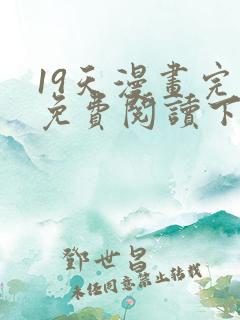 19天漫畫完
免費閱讀下
鄧世昌
未經同意禁止轉載